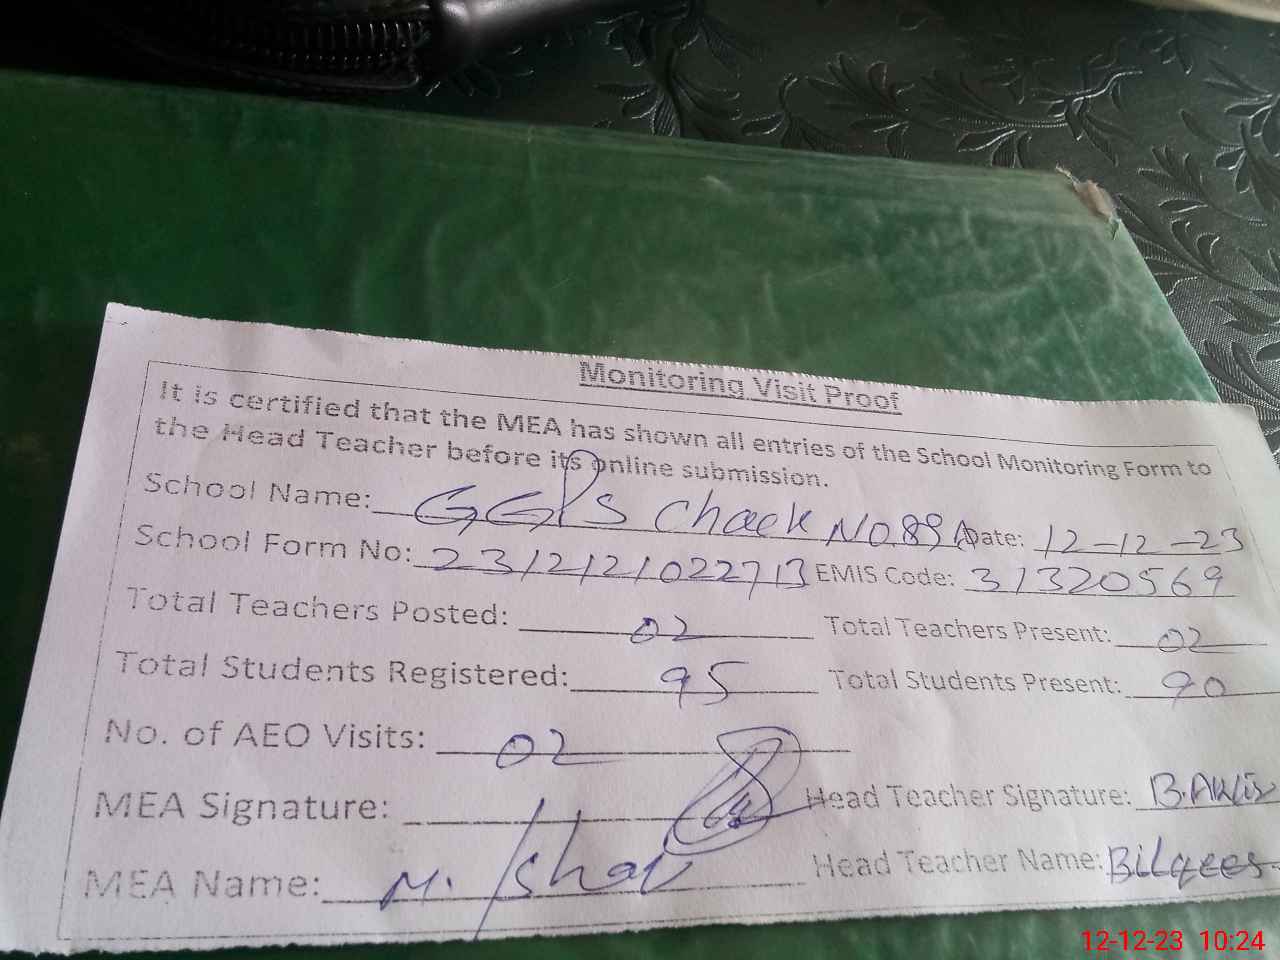 Monitoring Visit Proof
It is certified that the MEA has shown all entries of the School Monitoring Form to
the Head Teacher before its online submission.
School Name: GGPS Chack No. 89 A Date: 12-12-23
School Form No: 2312121022713 EMIS Code: 31320569
Total Teachers Posted: 02 Total Teachers Present: 02
Total Students Registered: 95 Total Students Present: 90
No. of AEO Visits: 02
MEA Signature: Head Teacher Signature:
MEA Name: M. Ishaq Head Teacher Name: Bilqees
12-12-23 10:24